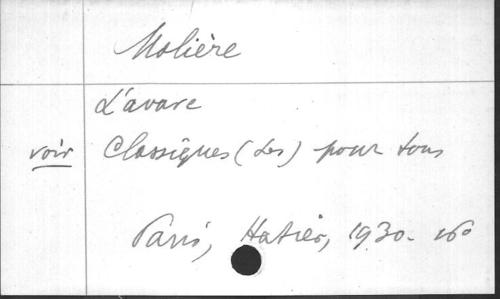 Molière
L'avare
voir Classiques (Les) pour tous
Paris, Hatier, 1930. 16º